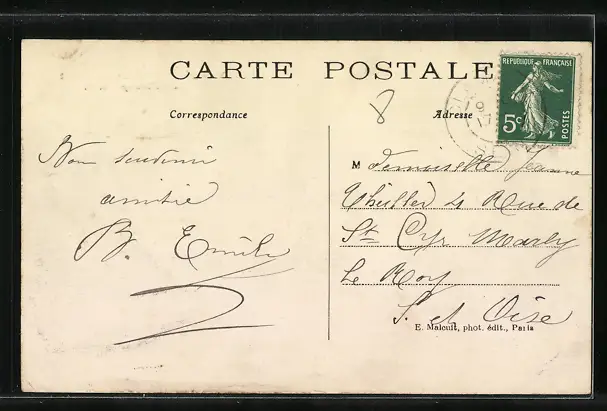 CARTE POSTALE
Correspondance
Adresse
8
REPUBLIQUE FRANÇAISE
5c
POSTES
Bon souvenir
amitié
B. Emile
M Demoiselle Jeanne
Thuiller 4 Rue de
St Cyr Marly
Le Roy
S. et Oise
E. Malcuit, phot. édit., Paris